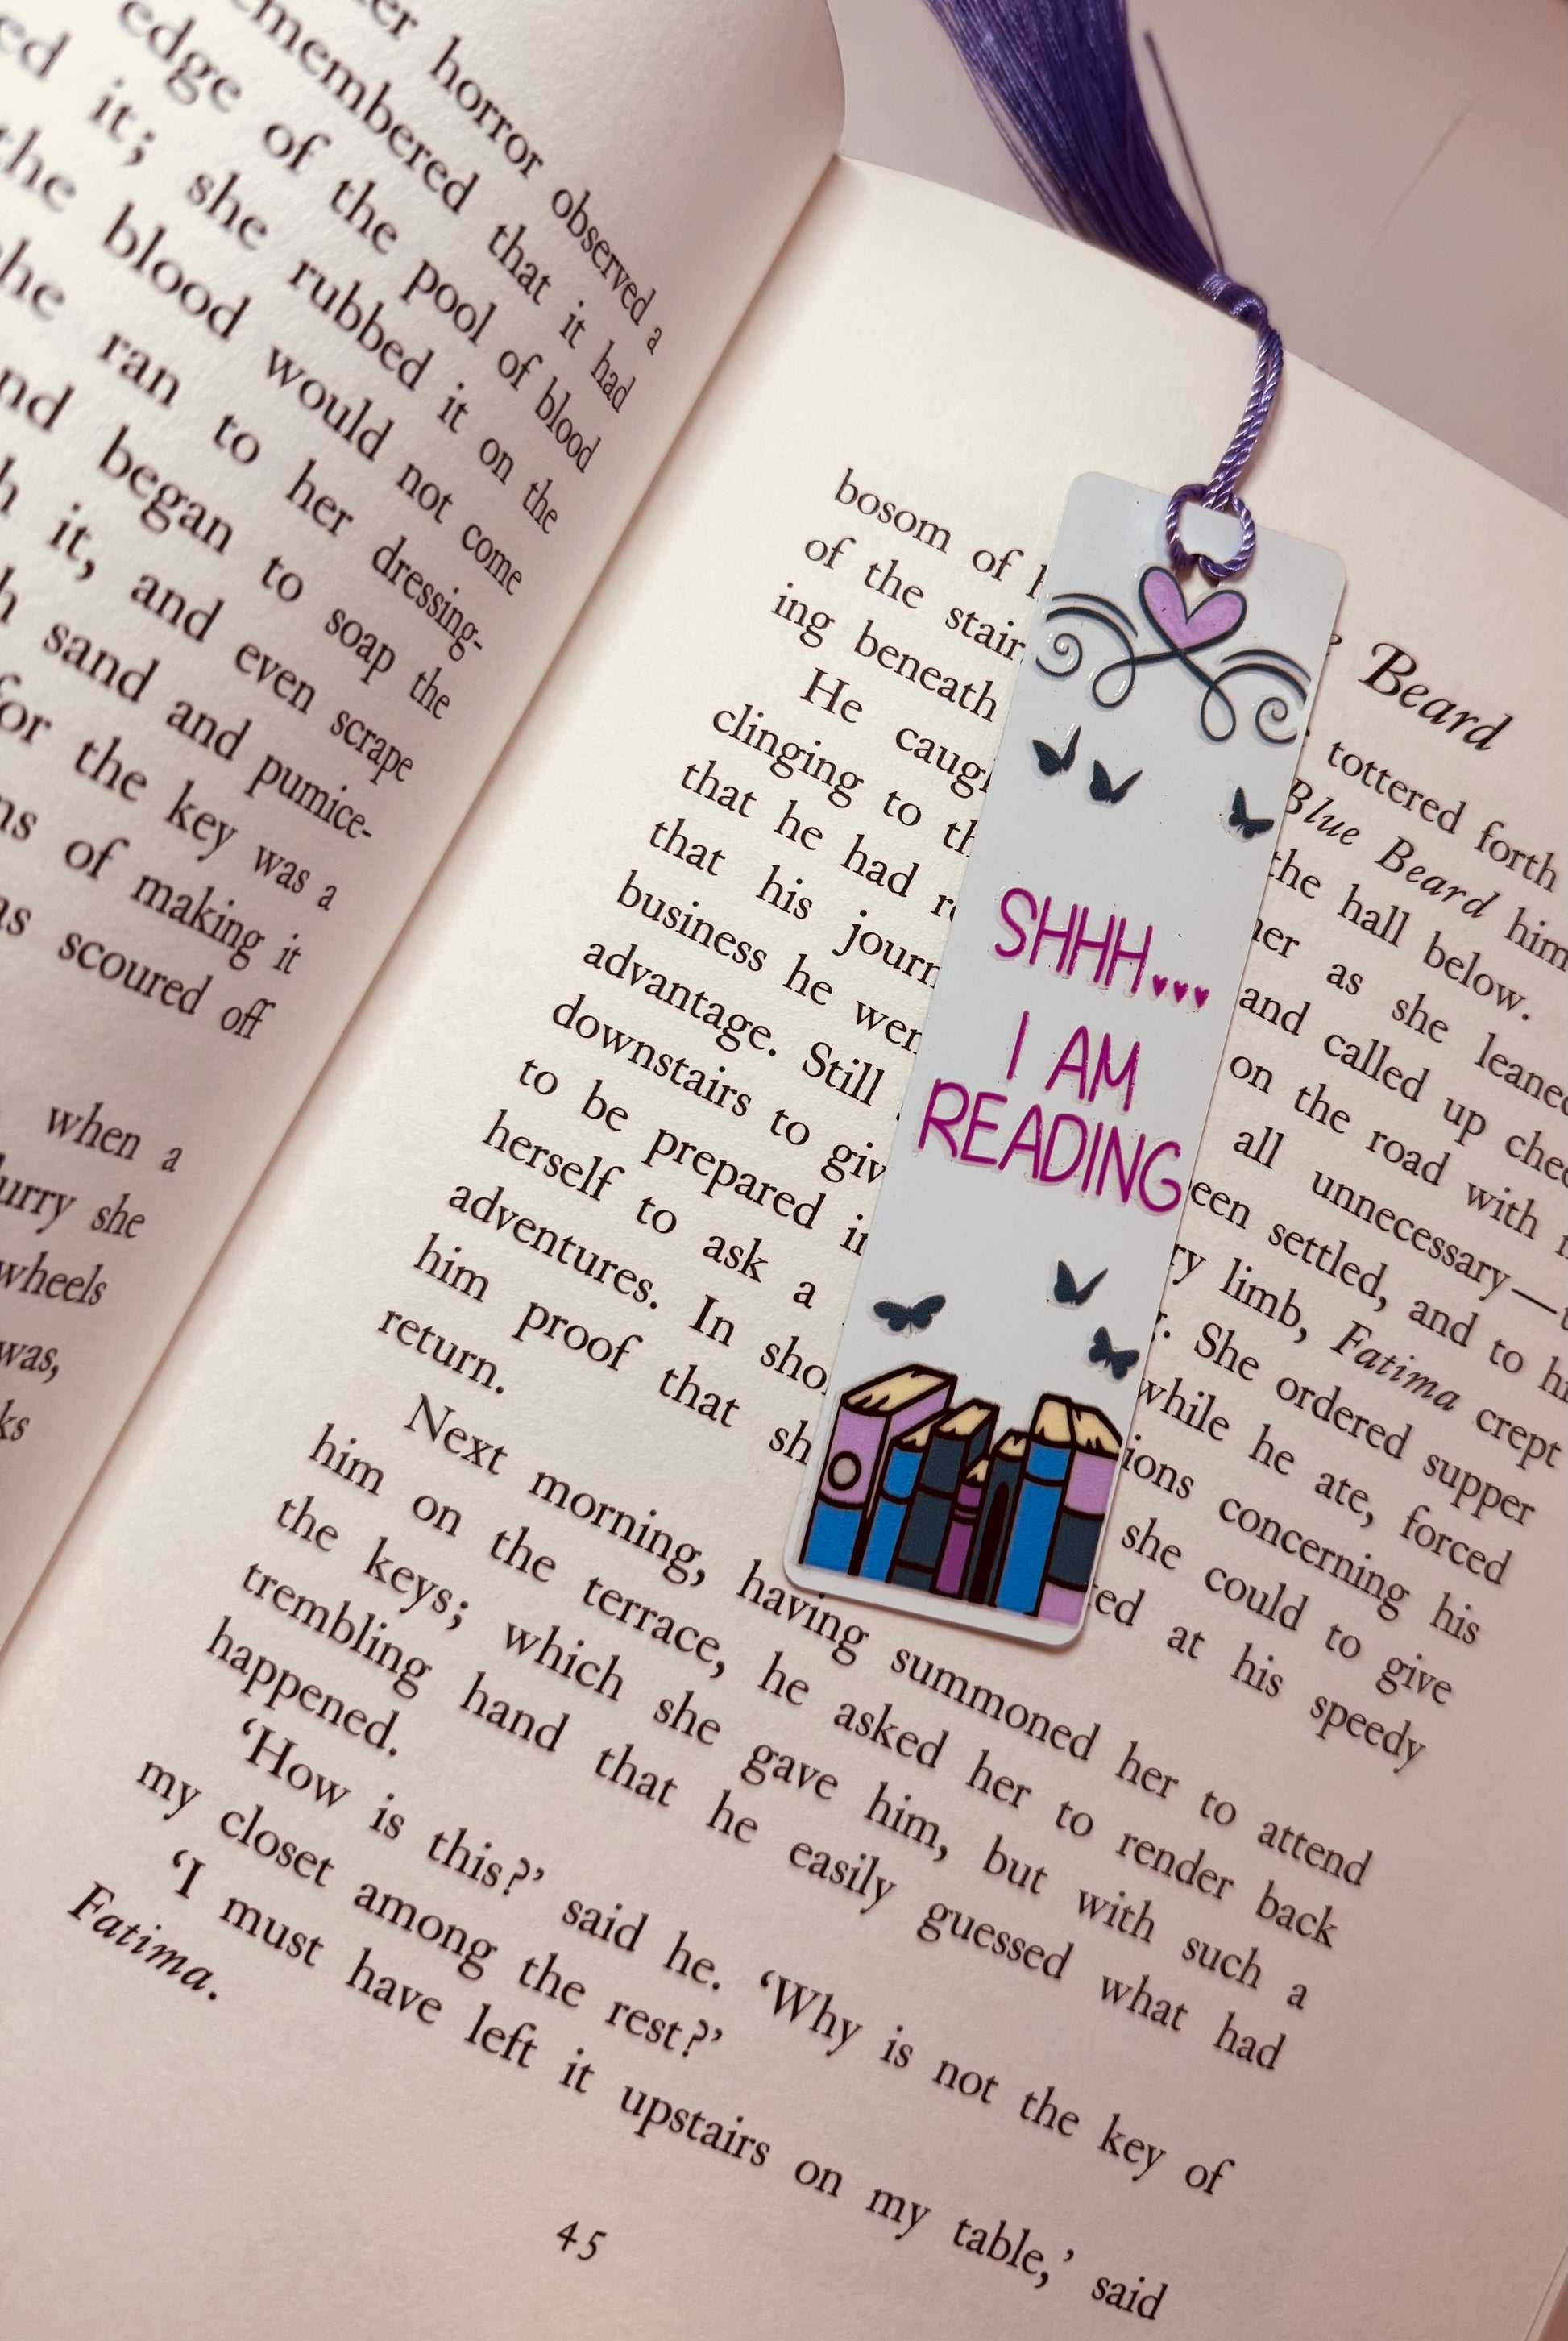 er horror observed a
emembered that it had
edge of the pool of blood
ed it; she rubbed it on the
the blood would not come
he ran to her dressing-
nd began to soap the
h it, and even scrape
h sand and pumice-
or the key was a
ns of making it
as scoured off
when a
urry she
wheels
was,
ks
Beard
bosom of tottered forth
of the stair Blue Beard him
ing beneath the hall below.
He caugh her as she leaned
clinging to th and called up chee
that he had re on the road with
that his journ all unnecessary—
business he wer een settled, and to hi
advantage. Still ry limb, Fatima crept
downstairs to giv She ordered supper
to be prepared i while he ate, forced
herself to ask a ions concerning his
adventures. In sho she could to give
him proof that sh ted at his speedy
return.
Next morning, having summoned her to attend
him on the terrace, he asked her to render back
the keys; which she gave him, but with such a
trembling hand that he easily guessed what had
happened.
‘How is this?’ said he. ‘Why is not the key of
my closet among the rest?’
‘I must have left it upstairs on my table,’ said
Fatima.
45
SHHH...
I AM
READING